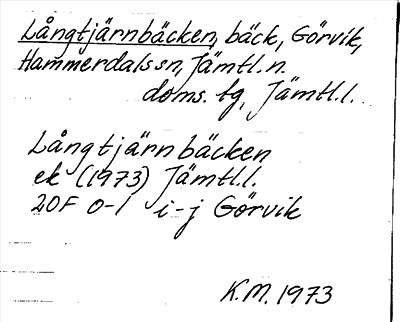 Långtjärnbäcken, bäck, Görvik,
Hammerdals sn, Jämtl. n.
doms. tg, Jämtl. l.
Långtjärnbäcken
ek (1973) Jämtl. l.
20F 0-1 i-j Görvik
K.M. 1973